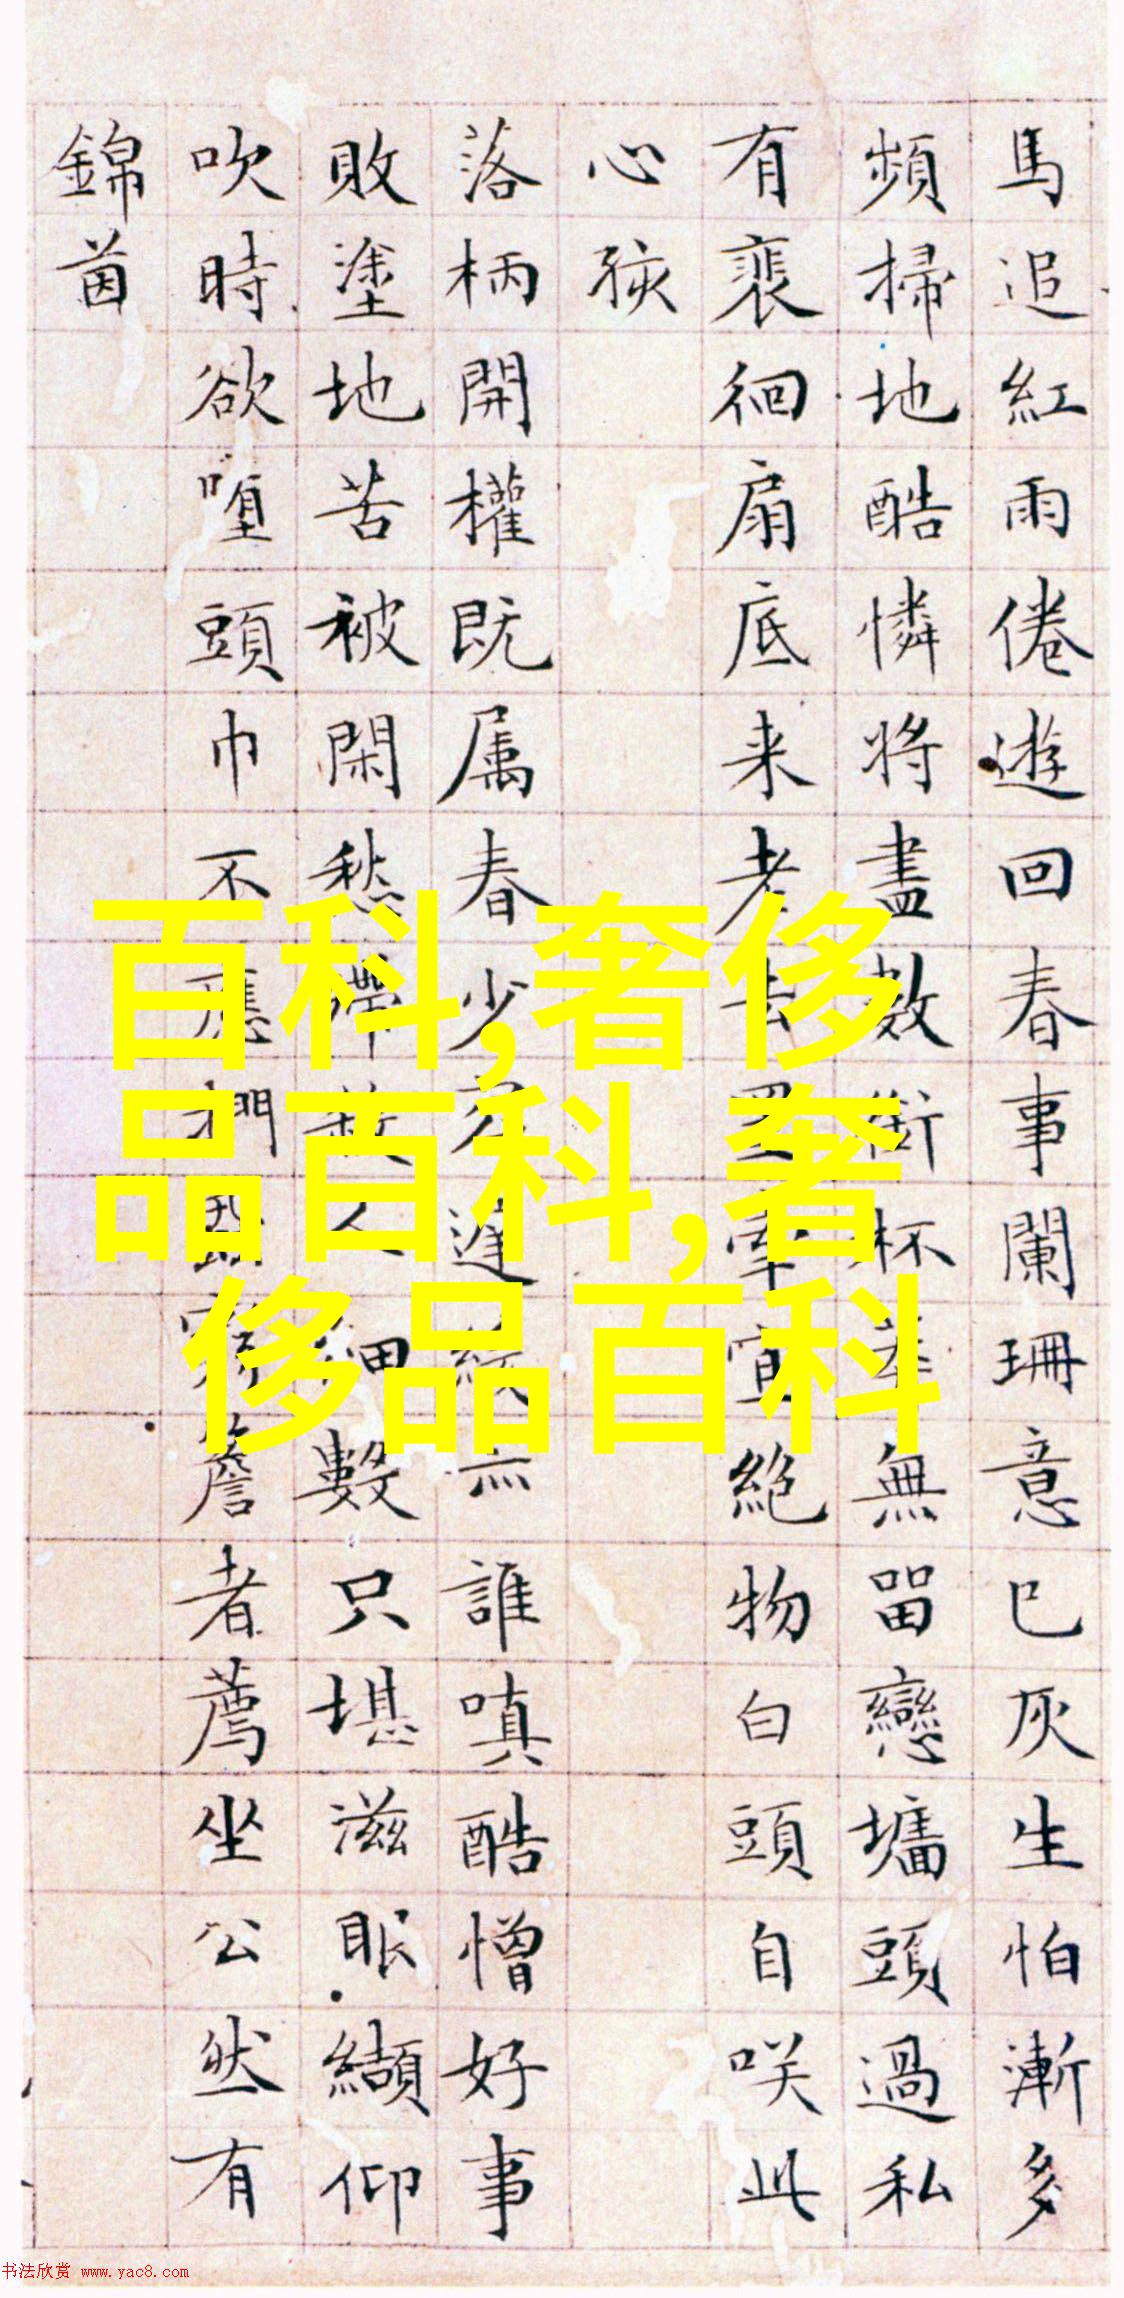 馬追紅雨倦遊回春事闌珊意已灰生怕漸多
頻掃地酷憐將盡数銜杯無畱戀墻頭過私
有裴徊扇底来老去牽宜絶物白頭自咲此
心孩
落柄開權既属春少遅無誰嗔酷憎好事
敗塗地苦被閑愁殢殺人細數只堪滋眼纈仰
吹時欲堕頭巾不應捫虱窮簷者薦坐公然有
錦茵
百科,奢侈
品百科,奢
侈品百科
书法欣赏 www.yac8.com